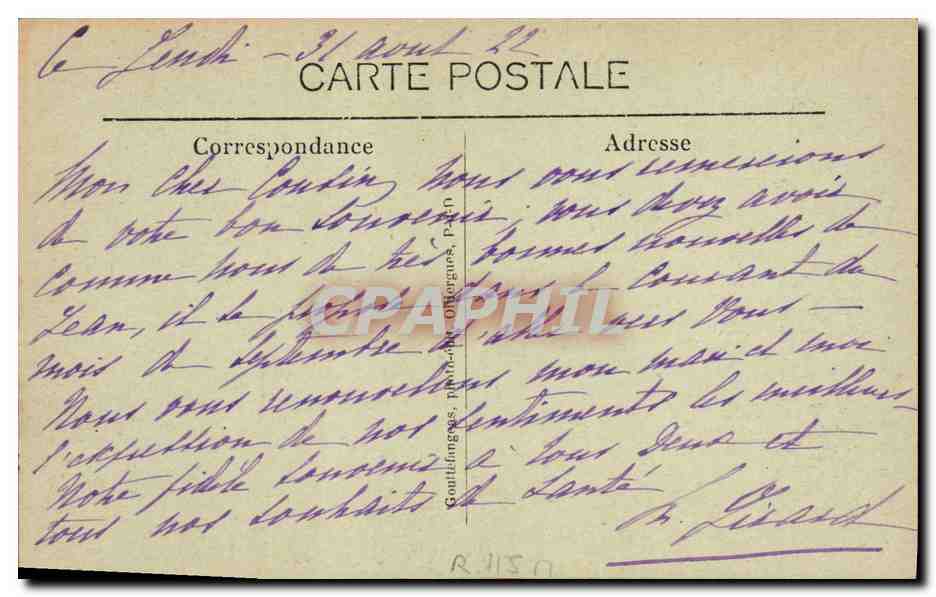 Ce Jeudi - 31 août 22
CARTE POSTALE
Correspondance
Adresse
Mon cher Cousin, nous vous remercions
de votre bon souvenir, vous devez avoir
comme nous de très bonnes nouvelles de
Jean, il se dans le courant du
mois de septembre vous -
Nous vous renouvelons mon mari et moi
l'expression de nos sentiments les meilleurs
Notre fidèle souvenir à tous deux et
tous nos souhaits de santé
Girard
Gouttefangeas, photo-édit. Olliergues, P.-de-D
CPAPHIL
R 115